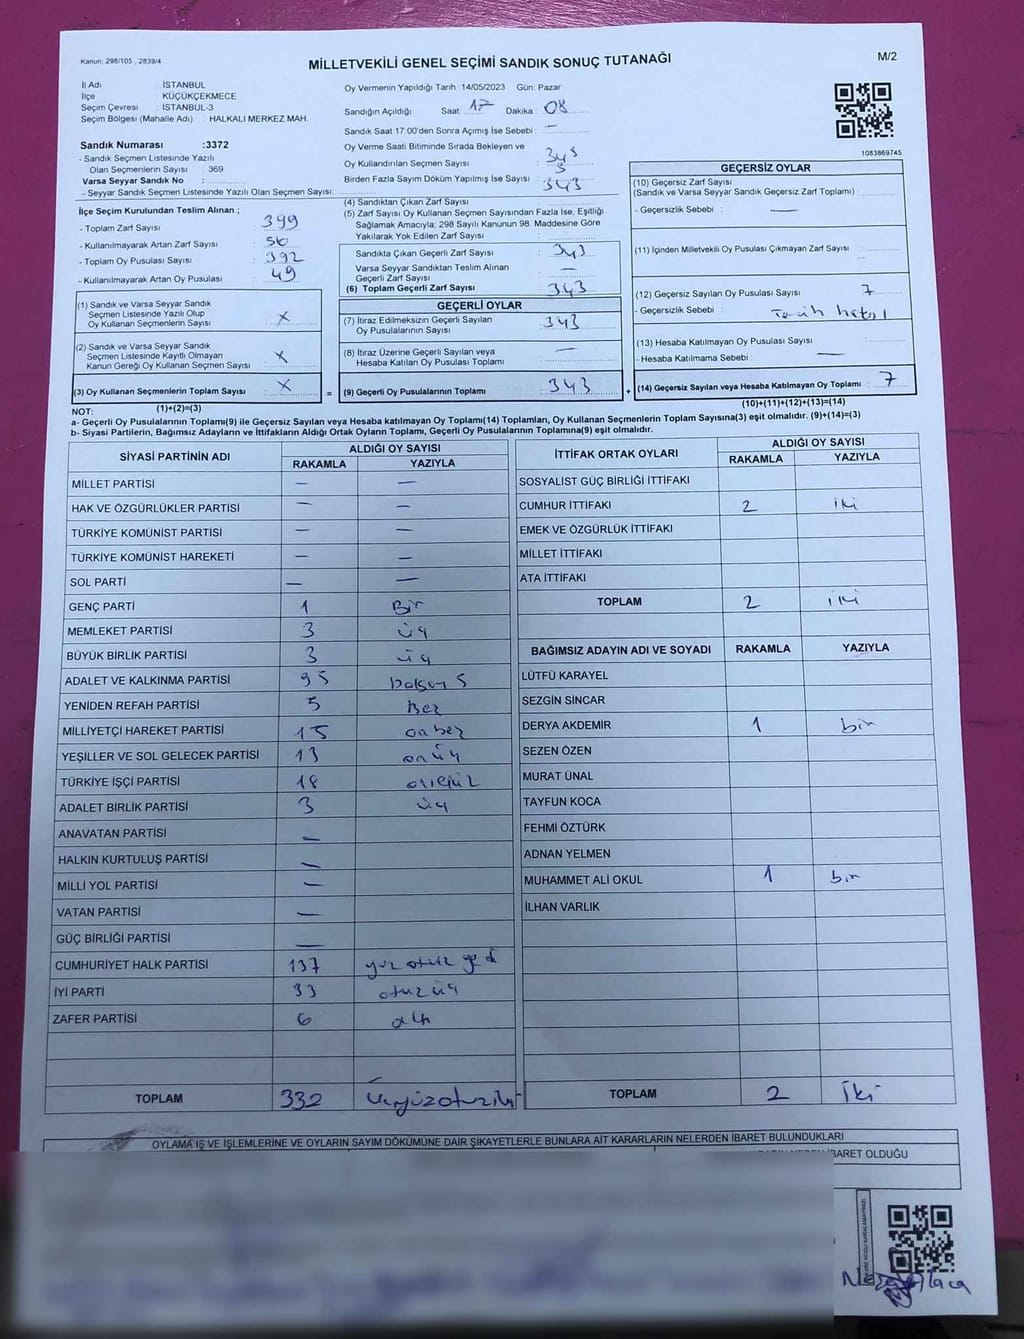 Kanun: 298/105 , 2839/4
MİLLETVEKİLİ GENEL SEÇİMİ SANDIK SONUÇ TUTANAĞI
M/2
İl Adı : İSTANBUL
İlçe : KÜÇÜKÇEKMECE
Seçim Çevresi : İSTANBUL-3
Seçim Bölgesi (Mahalle Adı) : HALKALI MERKEZ MAH.
Sandık Numarası :3372
- Sandık Seçmen Listesinde Yazılı
Olan Seçmenlerin Sayısı : 369
Varsa Seyyar Sandık No :
- Seyyar Sandık Seçmen Listesinde Yazılı Olan Seçmen Sayısı:
Oy Vermenin Yapıldığı Tarih :14/05/2023 Gün: Pazar
Sandığın Açıldığı Saat: 17 Dakika : 08
Sandık Saat 17:00'den Sonra Açımış İse Sebebi : —
Oy Verme Saati Bitiminde Sırada Bekleyen ve
Oy Kullandırılan Seçmen Sayısı
Birden Fazla Sayım Döküm Yapılmış İse Sayısı : 343
1083869745
İlçe Seçim Kurulundan Teslim Alınan ;
- Toplam Zarf Sayısı : 399
- Kullanılmayarak Artan Zarf Sayısı : 56
- Toplam Oy Pusulası Sayısı : 392
- Kullanılmayarak Artan Oy Pusulası : 49
(1) Sandık ve Varsa Seyyar Sandık
Seçmen Listesinde Yazılı Olup
Oy Kullanan Seçmenlerin Sayısı : X
(2) Sandık ve Varsa Seyyar Sandık
Seçmen Listesinde Kayıtlı Olmayan
Kanun Gereği Oy Kullanan Seçmen Sayısı : X
(3) Oy Kullanan Seçmenlerin Toplam Sayısı : X
(1)+(2)=(3)
(4) Sandıktan Çıkan Zarf Sayısı :
(5) Zarf Sayısı Oy Kullanan Seçmen Sayısından Fazla İse, Eşitliği
Sağlamak Amacıyla; 298 Sayılı Kanunun 98. Maddesine Göre
Yakılarak Yok Edilen Zarf Sayısı :
Sandıkta Çıkan Geçerli Zarf Sayısı : 343
Varsa Seyyar Sandıktan Teslim Alınan
Geçerli Zarf Sayısı : —
(6) Toplam Geçerli Zarf Sayısı : 343
GEÇERLİ OYLAR
(7) İtiraz Edilmeksizin Geçerli Sayılan
Oy Pusulalarının Sayısı : 343
(8) İtiraz Üzerine Geçerli Sayılan veya
Hesaba Katılan Oy Pusulası Toplamı : —
= (9) Geçerli Oy Pusulalarının Toplamı : 343 +
GEÇERSİZ OYLAR
(10) Geçersiz Zarf Sayısı
(Sandık ve Varsa Seyyar Sandık Geçersiz Zarf Toplamı) :
- Geçersizlik Sebebi : —
(11) İçinden Milletvekili Oy Pusulası Çıkmayan Zarf Sayısı :
(12) Geçersiz Sayılan Oy Pusulası Sayısı : 7
- Geçersizlik Sebebi : Tercih hatası
(13) Hesaba Katılmayan Oy Pusulası Sayısı :
- Hesaba Katılmama Sebebi : —
(14) Geçersiz Sayılan veya Hesaba Katılmayan Oy Toplamı : 7
(10)+(11)+(12)+(13)=(14)
NOT:
a- Geçerli Oy Pusulalarının Toplamı(9) ile Geçersiz Sayılan veya Hesaba katılmayan Oy Toplamı(14) Toplamları, Oy Kullanan Seçmenlerin Toplam Sayısına(3) eşit olmalıdır. (9)+(14)=(3)
b- Siyasi Partilerin, Bağımsız Adayların ve İttifakların Aldığı Ortak Oyların Toplamı, Geçerli Oy Pusulalarının Toplamına(9) eşit olmalıdır.
SİYASİ PARTİNİN ADI ALDIĞI OY SAYISI
RAKAMLA YAZIYLA
MİLLET PARTİSİ — —
HAK VE ÖZGÜRLÜKLER PARTİSİ — —
TÜRKİYE KOMÜNİST PARTİSİ — —
TÜRKİYE KOMÜNİST HAREKETİ — —
SOL PARTİ — —
GENÇ PARTİ 1 Bir
MEMLEKET PARTİSİ 3 üç
BÜYÜK BİRLİK PARTİSİ 3 üç
ADALET VE KALKINMA PARTİSİ 95
YENİDEN REFAH PARTİSİ 5 Beş
MİLLİYETÇİ HAREKET PARTİSİ 15 onbeş
YEŞİLLER VE SOL GELECEK PARTİSİ 13 onüç
TÜRKİYE İŞÇİ PARTİSİ 18 onsekiz
ADALET BİRLİK PARTİSİ 3 üç
ANAVATAN PARTİSİ —
HALKIN KURTULUŞ PARTİSİ —
MİLLİ YOL PARTİSİ —
VATAN PARTİSİ —
GÜÇ BİRLİĞİ PARTİSİ —
CUMHURİYET HALK PARTİSİ 137 yüz otuz yedi
İYİ PARTİ 33 otuz üç
ZAFER PARTİSİ 6 altı
TOPLAM 332 Üçyüzotuziki
İTTİFAK ORTAK OYLARI ALDIĞI OY SAYISI
RAKAMLA YAZIYLA
SOSYALİST GÜÇ BİRLİĞİ İTTİFAKI
CUMHUR İTTİFAKI 2 iki
EMEK VE ÖZGÜRLÜK İTTİFAKI
MİLLET İTTİFAKI
ATA İTTİFAKI
TOPLAM 2 iki
BAĞIMSIZ ADAYIN ADI VE SOYADI RAKAMLA YAZIYLA
LÜTFÜ KARAYEL
SEZGİN SİNCAR
DERYA AKDEMİR 1 bir
SEZEN ÖZEN
MURAT ÜNAL
TAYFUN KOCA
FEHMİ ÖZTÜRK
ADNAN YELMEN
MUHAMMET ALİ OKUL 1 bir
İLHAN VARLIK
TOPLAM 2 İki
OYLAMA İŞ VE İŞLEMLERİNE VE OYLARIN SAYIM DÖKÜMÜNE DAİR ŞİKAYETLERLE BUNLARA AİT KARARLARIN NELERDEN İBARET BULUNDUKLARI
İBARET OLDUĞU